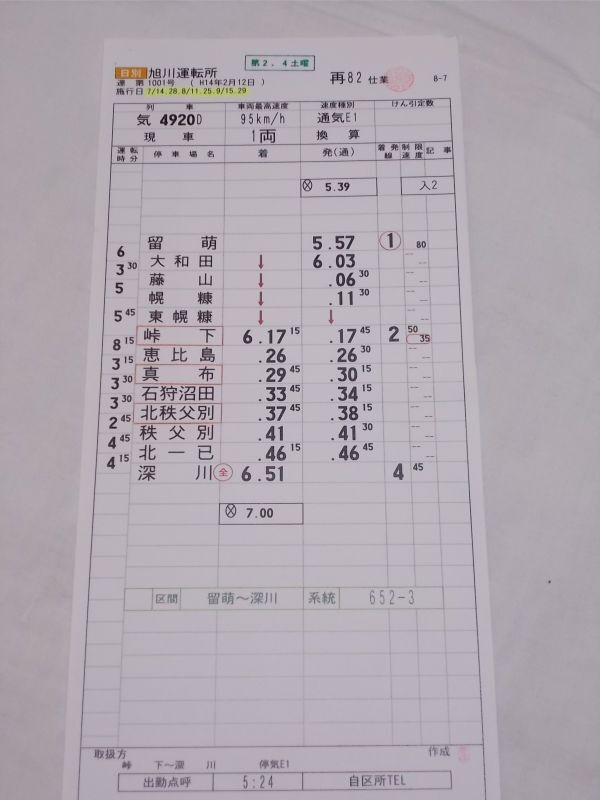 第2．4土曜
日別 旭川運転所 再82 仕業 8-7
運 第1001号 (H14年2月12日)
施行日 7/14.28.8/11.25.9/15.29
列車 車両最高速度 速度種別 けん引定数
気 4920D 95km/h 通気E1
現車 1両 換算
運転時分 停車場名 着 発(通) 着発線 制限速度 記事
5.39 入2
留萌 5.57 ① 80
6
大和田 ↓ 6.03
3 30
藤山 ↓ .06 30
5
幌糠 ↓ .11 30
東幌糠 ↓ ↓
5 45
峠下 6.17 15 .17 45 2 50 35
8 15
恵比島 .26 .26 30
3 15
真布 .29 45 .30 15
3 30
石狩沼田 .33 45 .34 15
3 30
北秩父別 .37 45 .38 15
2 45
秩父別 .41 .41 30
4 45
北一已 .46 15 .46 45
4 15
深川 全 6.51 4 45
7.00
区間 留萌～深川 系統 652-3
取扱方 作成
峠下～深川 停気E1
出勤点呼 5:24 自区所TEL